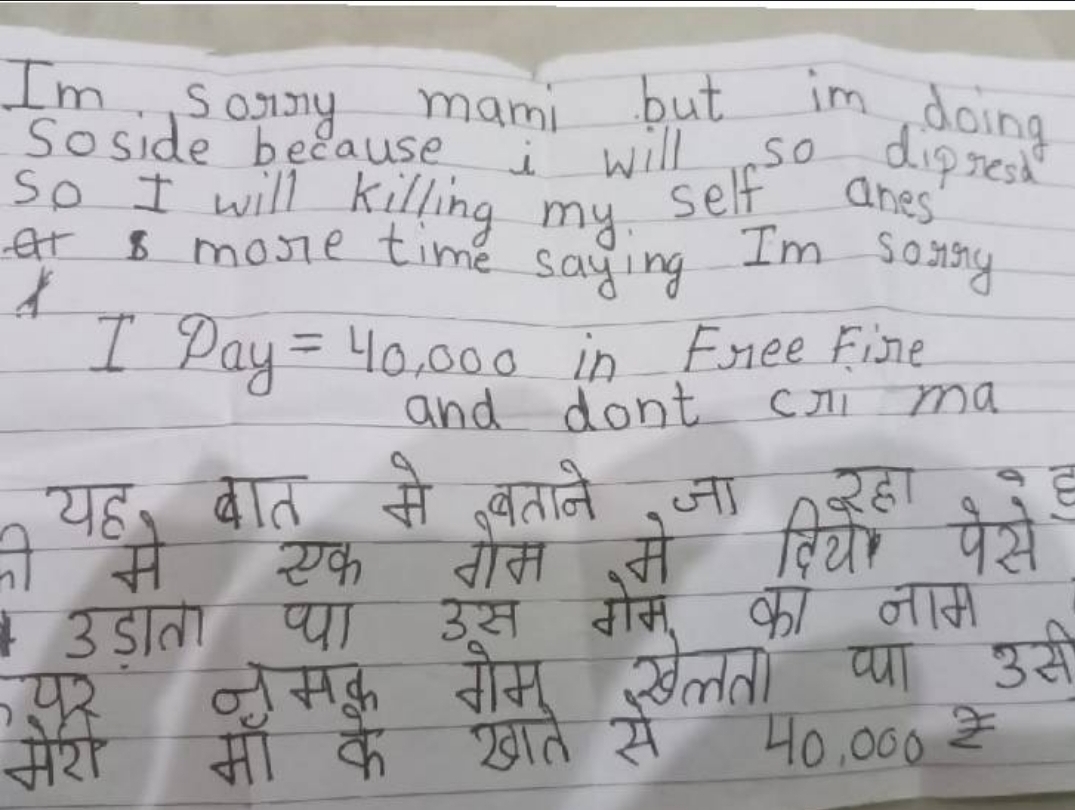 Im sorry mami but im doing
Soside because i will so dipresd
So I will killing my self anes
more time saying Im sorry
I Pay = 40,000 in Free Fire
and dont cri ma
यह बात मे बताने जा रहा हु
की मे एक गेम मे दिये पेसे
उड़ाता था उस गेम का नाम
पर नमक गेम खेलता था उसी
मेरी माँ के खाते से 40,000 ₹